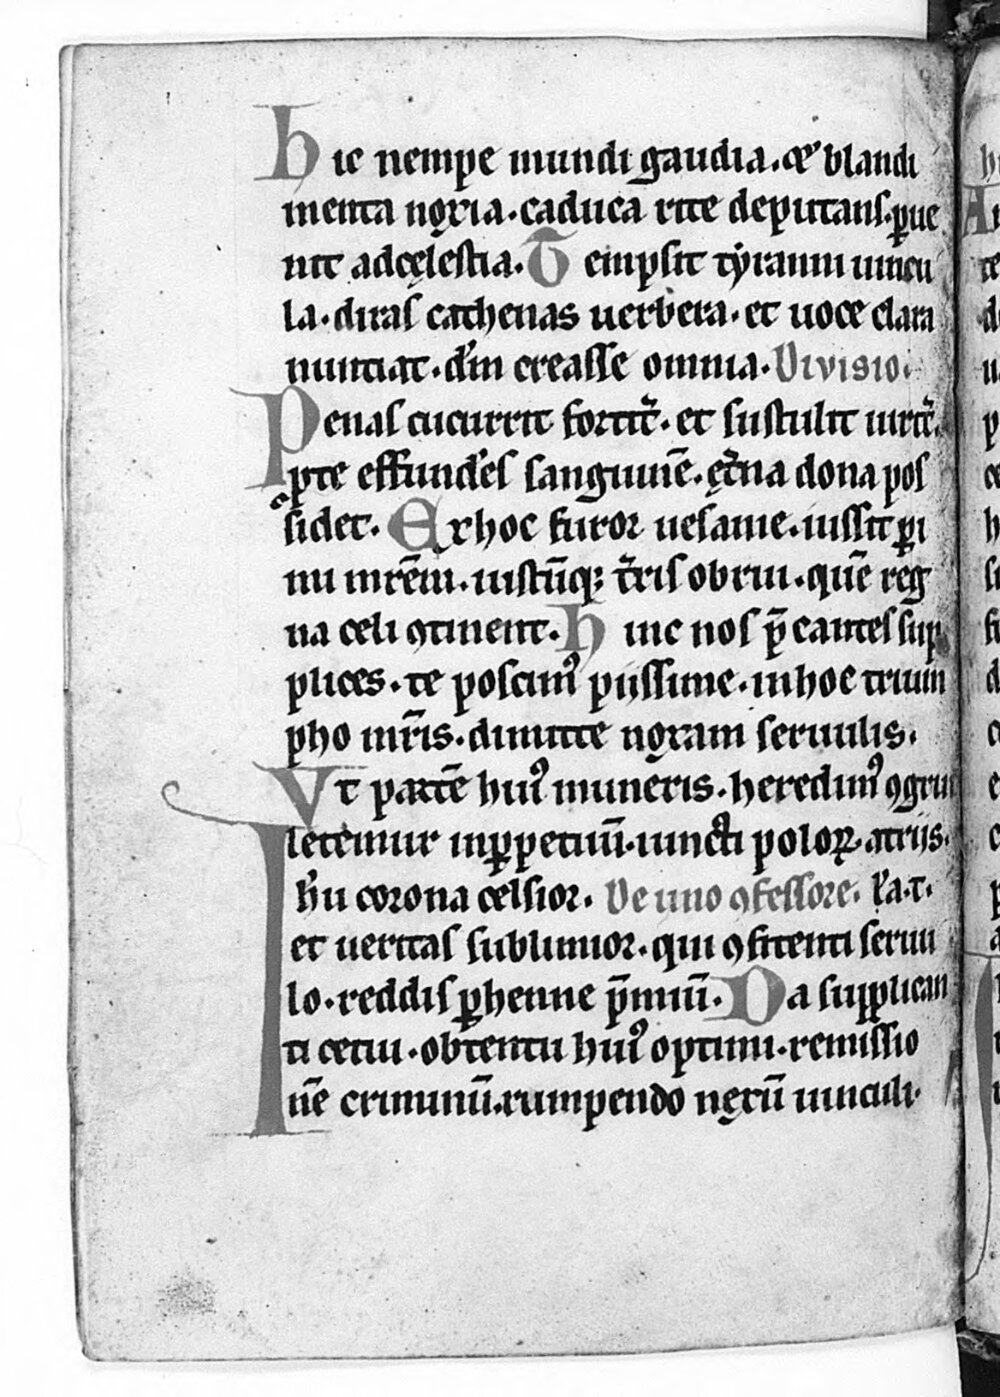 Hic nempe mundi gaudia. ⁊ blandi
menta noxia. caduca rite deputans. ꝑue
nit ad cęlestia. Tempsit tẏranni uincu
la. diras cathenas uerbera. et uoce clara
nuntiat. dn̄m creasse omnia. Divisio.
Penas cucurrit fortit̄. et sustulit uirit̄.
p te effundes sanguinē. et̄na dona pos
sidet. Ex hoc furor uesanie. iussit ꝑi
mi mr̄em. iustūq; t̄ris obrui. quē reg
na celi ꝯtinent. Hinc nos p̄cantes sup
plices. te poscimꝰ piissime. in hoc trium
pho mr̄is. dimitte noxam seruulis.
Vt partē huiꝰ muneris. heredimꝰ ꝯgrui
letemur in ꝑpetuū. iuncti poloꝝ atriis.
Ih̄u corona celsior. De uno ꝯfessore.
et ueritas sublimior. qui ꝯfitenti seruu
lo. reddis ꝑhenne p̄miū. Da supplican
ti cetui. obtentu huiꝰ optimi. remissio
nē criminū. rumpendo nexū uinculi.